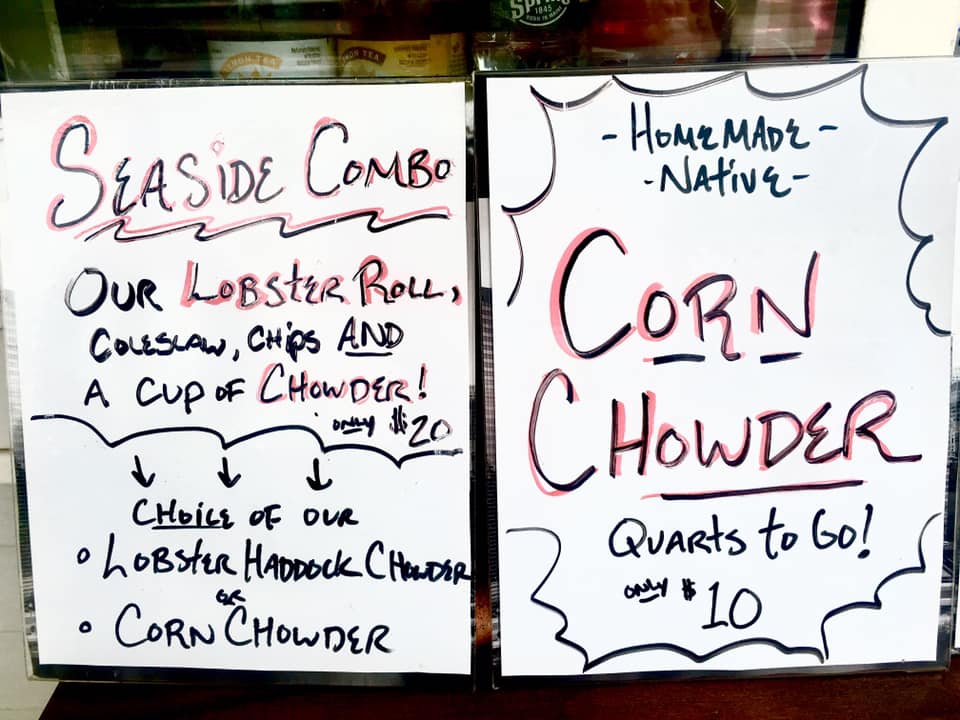 Spring
1845
BORN IN MAINE
HOT TEA
SEASIDE COMBO
OUR LOBSTER ROLL,
COLESLAW, CHIPS AND
A CUP OF CHOWDER!
ONLY $20
CHOICE OF OUR
• LOBSTER HADDOCK CHOWDER
OR
• CORN CHOWDER
- HOMEMADE -
- NATIVE -
CORN
CHOWDER
QUARTS TO GO!
ONLY $10